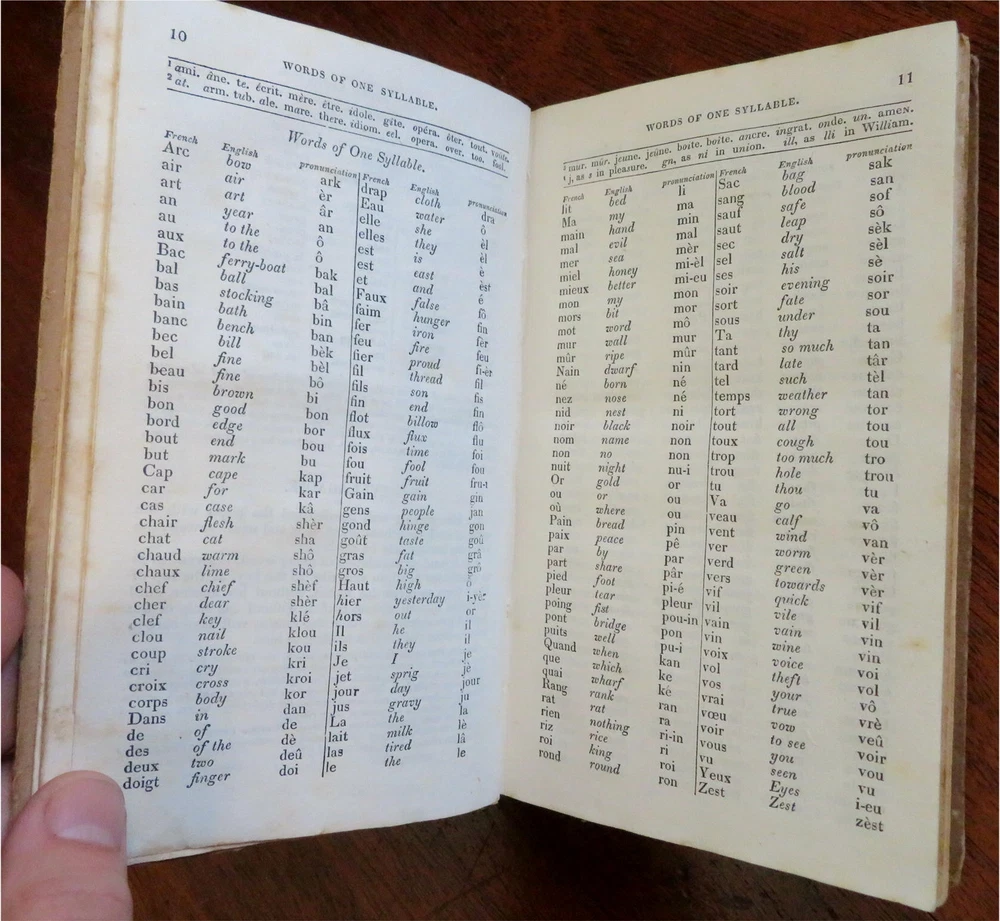 10
WORDS OF ONE SYLLABLE.
1 ami. âne. te. écrit. mère. être. idole. gîte. opéra. ôter. tout. voûte.
2 at. arm. tub. ale. mare. there. idiom. eel. opera. over. too. fool.
Words of One Syllable.
French English pronunciation
Arc bow ark
air air èr
art art âr
an year an
au to the ô
aux to the ô
Bac ferry-boat bak
bal ball bal
bas stocking bâ
bain bath bin
banc bench ban
bec bill bèk
bel fine bèl
beau fine bô
bis brown bi
bon good bon
bord edge bor
bout end bou
but mark bu
Cap cape kap
car for kar
cas case kâ
chair flesh shèr
chat cat sha
chaud warm shô
chaux lime shô
chef chief shèf
cher dear shèr
clef key klé
clou nail klou
coup stroke kou
cri cry kri
croix cross kroi
corps body kor
Dans in dan
de of de
des of the dè
deux two deû
doigt finger doi
French English pronunciation
drap cloth dra
Eau water ô
elle she èl
elles they èl
est is è
est east èst
et and é
Faux false fô
faim hunger fin
fer iron fèr
feu fire feu
fier proud fi-èr
fil thread fil
fils son fis
fin end fin
flot billow flô
flux flux flu
fois time foi
fou fool fou
fruit fruit fru-i
Gain gain gin
gens people jan
gond hinge gon
goût taste goû
gras fat grâ
gros big grô
Haut high ô
hier yesterday i-yèr
hors out or
Il he il
ils they il
Je I je
jet sprig jè
jour day jour
jus gravy ju
La the la
lait milk lè
las tired lâ
le the le
11
WORDS OF ONE SYLLABLE.
1 mur. mûr. jeune. jeûne. boite. boîte. ancre. ingrat. onde. un. amen.
j, as s in pleasure. gn, as ni in union. ill, as lli in William.
French English pronunciation
lit bed li
Ma my ma
main hand min
mal evil mal
mer sea mèr
miel honey mi-èl
mieux better mi-eu
mon my mon
mors bit mor
mot word mô
mur wall mur
mûr ripe mûr
Nain dwarf nin
né born né
nez nose né
nid nest ni
noir black noir
nom name non
non no non
nuit night nu-i
Or gold or
ou or ou
où where ou
Pain bread pin
paix peace pê
par by par
part share pâr
pied foot pi-é
pleur tear pleur
poing fist pou-in
pont bridge pon
puits well pu-i
Quand when kan
que which ke
quai wharf ké
Rang rank ran
rat rat ra
rien nothing ri-in
riz rice ri
roi king roi
rond round ron
French English pronunciation
Sac bag sak
sang blood san
sauf safe sof
saut leap sô
sec dry sèk
sel salt sèl
ses his sè
soir evening soir
sort fate sor
sous under sou
Ta thy ta
tant so much tan
tard late târ
tel such tèl
temps weather tan
tort wrong tor
tout all tou
toux cough tou
trop too much tro
trou hole trou
tu thou tu
Va go va
veau calf vô
vent wind van
ver worm vèr
verd green vèr
vers towards vèr
vif quick vif
vil vile vil
vain vain vin
vin wine vin
voix voice voi
vol theft vol
vos your vô
vrai true vrè
vœu vow veû
voir to see voir
vous you vou
vu seen vu
Yeux Eyes i-eu
Zest Zest zèst